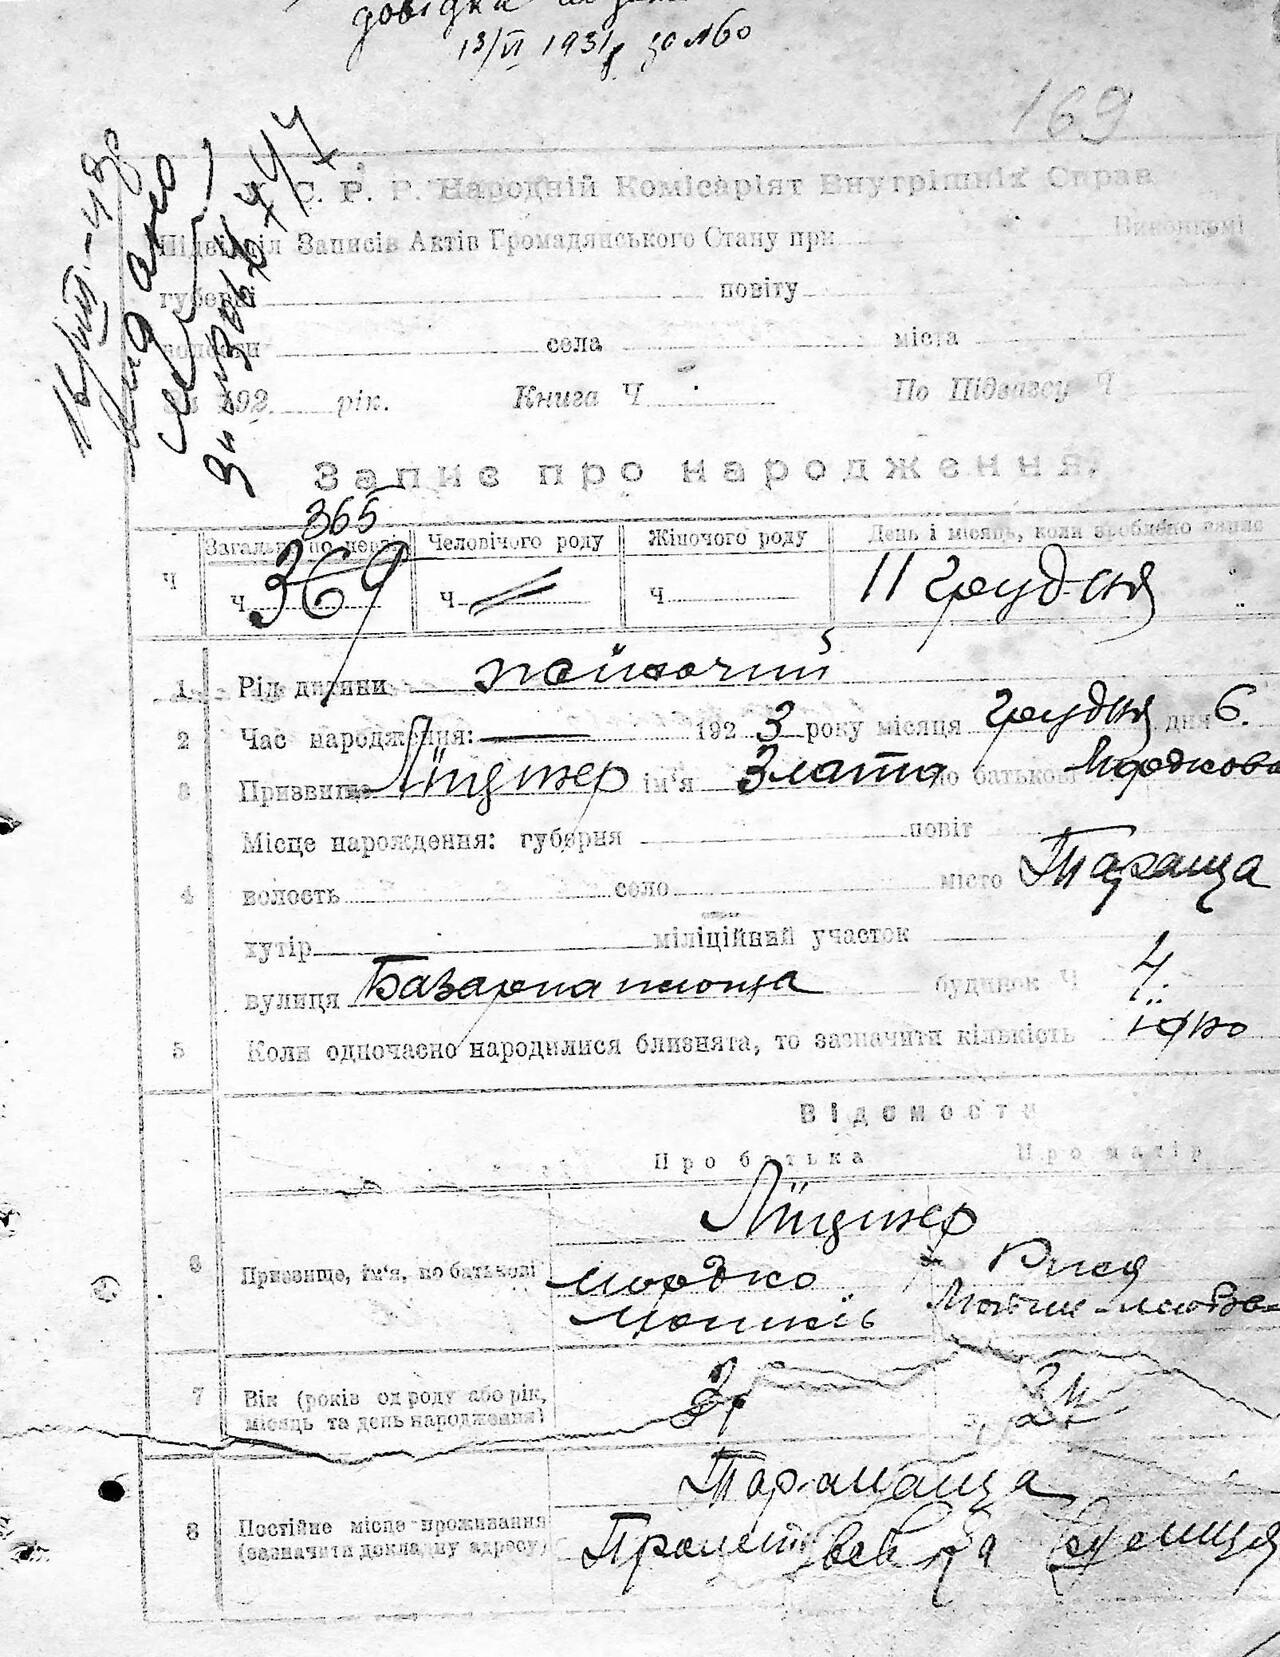 довідка
13/VI 1931 р за №60
169
С. Р. Р. Народній Комісаріят Внутрішніх Справ
Підвідділ Записів Актів Громадянського Стану при Виконкомі
губерні повіту
волости села міста
За 192 рік. Книга Ч По Підзагсу Ч
Запис про народження.
365
Загальн по перв. Человічого роду Жіночого роду День і місяць, коли зроблено запис
Ч Ч 369 Ч Ч 11 грудня
1 Рід дитини жіночий
2 Час народження: 192 3 року місяця грудня дня 6.
3 Призвище Ліщинер ім'я Злата по батькові Мордкова
Місце нарождення: губерня повіт
4 волость село місто Тараща
хутір міліційний участок
вулиця Базарна площа будинок Ч 4
5 Коли одночасно народилися близнята, то зазначити кількість одно
Відомости
Про батька Про матір
Ліщинер
6 Призвище, ім'я, по батькові Мордко Рися
Мошків
7 Вік (років од роду або рік,
місяць та день народження)
Тараща
8 Постійне місце проживання
(зазначити докладну адресу)